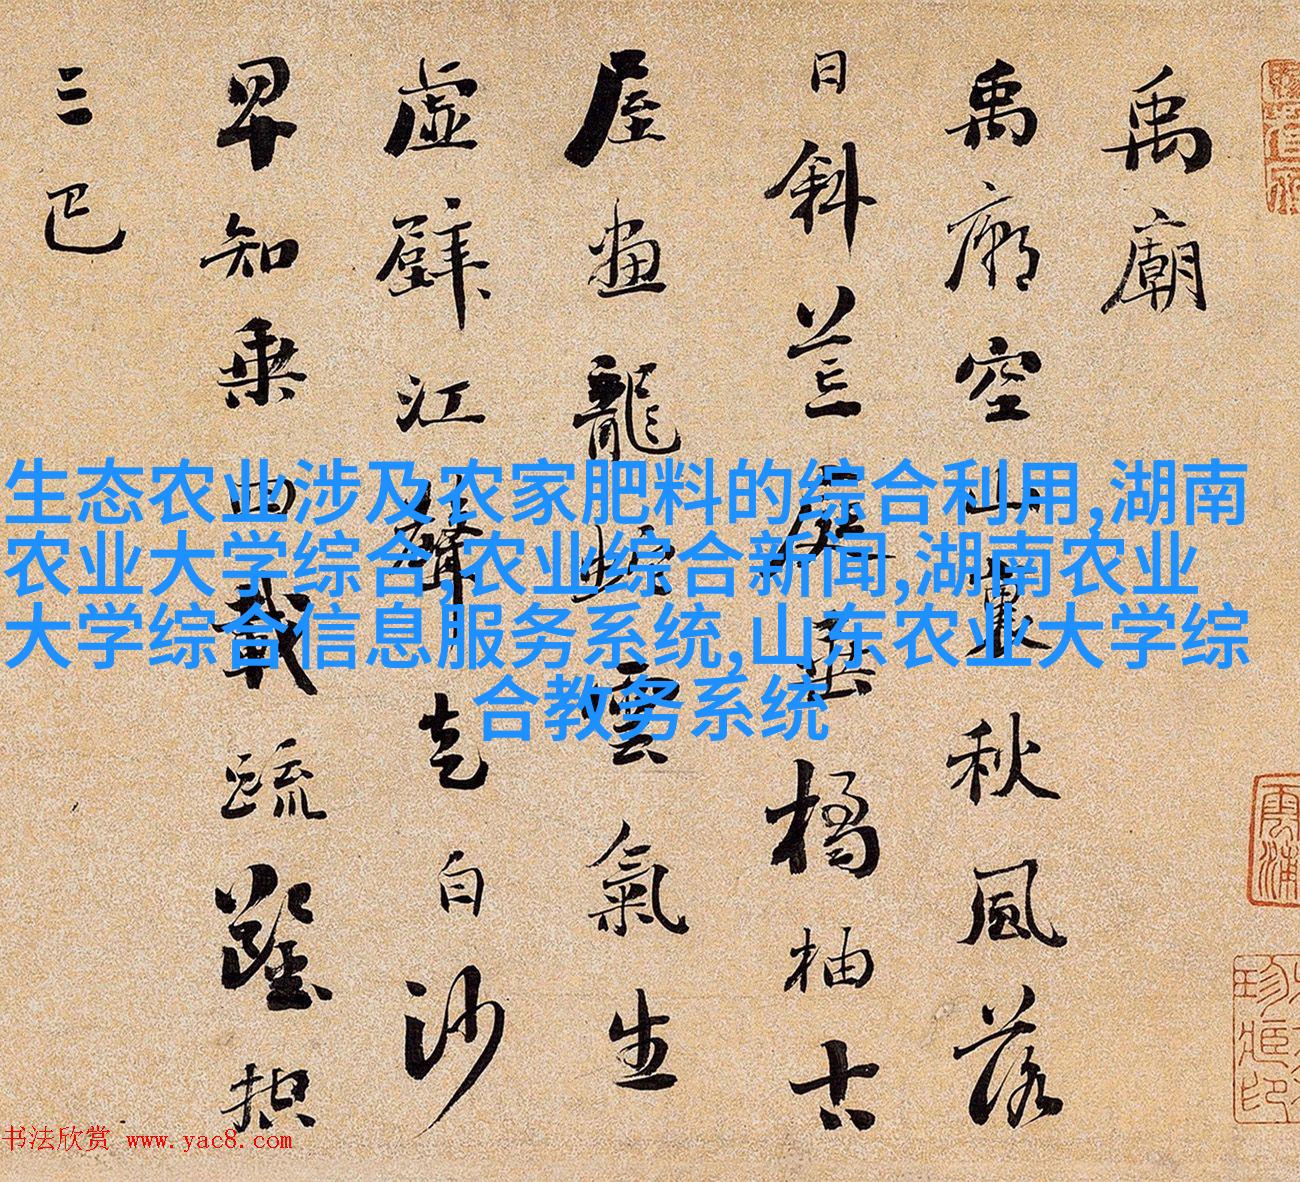 禹廟
禹廟空山裏秋風落
日斜荒庭垂橘柚古
屋畫龍蛇雲氣生
虛壁江聲走白沙
早知乘四載疏鑿控
三巴
生态农业涉及农家肥料的综合利用,湖南
农业大学综合,农业综合新闻,湖南农业
大学综合信息服务系统,山东农业大学综
合教务系统
书法欣赏 www.yac8.com